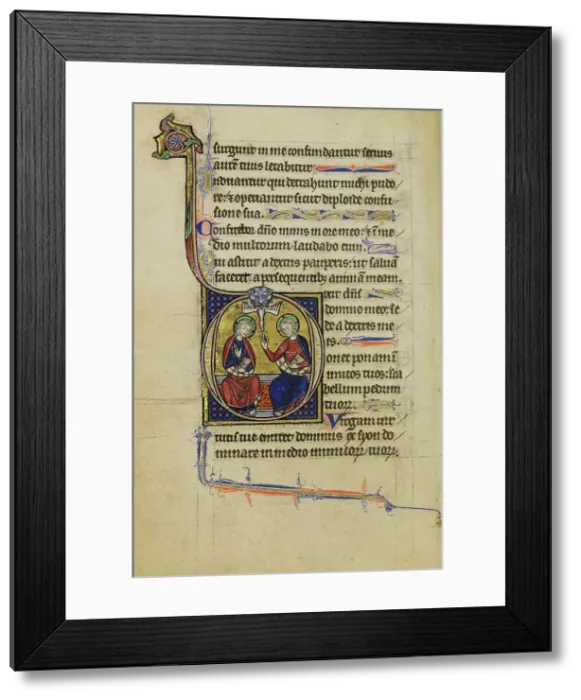 surgunt in me confundantur seruus
aute tuus letabitur
nduantur qui detrahunt michi pudo
re: & operiantur sicut diploide confu
sione sua.
Confitebor dño nimis in ore meo: & ĩ me
dio multorum laudabo eum.
ui astitit a dextris pauperis: ut saluã
faceret a persequentibȝ animã meam.
ixit dñs
domino meo: se
de a dextris me
is.
onec ponam ĩ
imicos tuos: sca
bellum pedum
tuoꝝ.
Virgam uir
tutis tue emittet dominus ex syon do
minare in medio inimicoꝝ tuoꝝ.